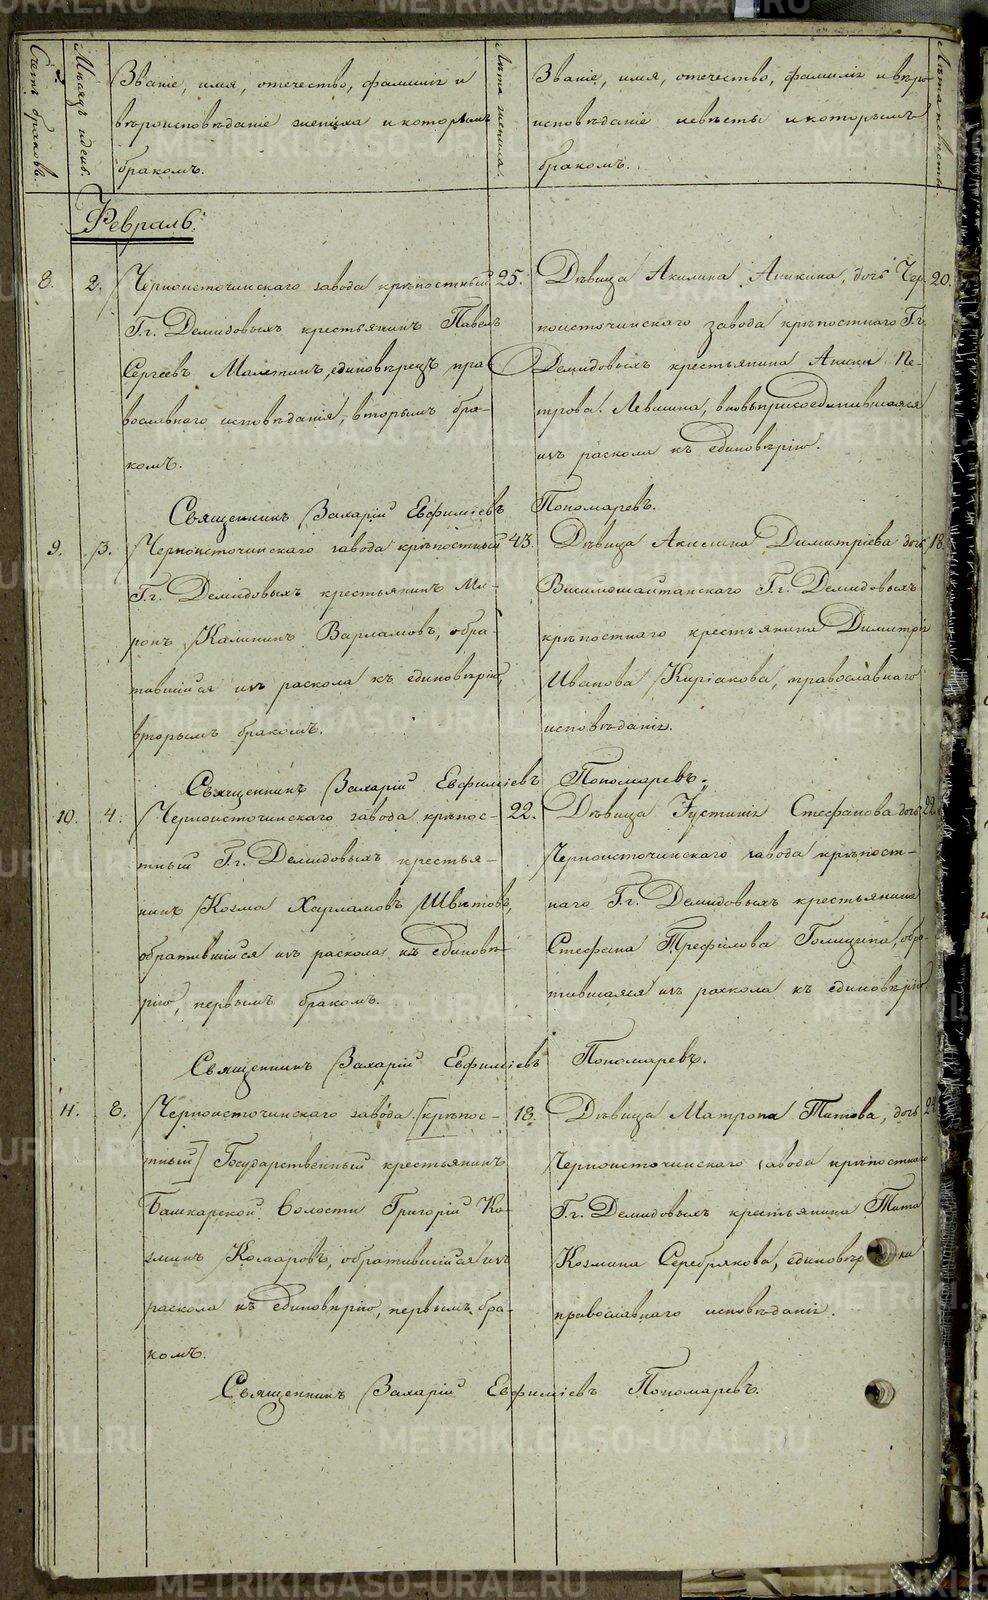 Счетъ браковъ.
Мѣсяцъ и день.
Званіе, имя, отечество, фамилія и
вѣроисповѣданіе жениха и которымъ
бракомъ.
Лѣта жениха.
Званіе, имя, отечество, фамилія и вѣро
исповѣданіе невѣсты и которымъ
бракомъ.
Лѣта невѣсты.
Февраль.
8. 2.
Черноисточинскаго завода крѣпостный
Г.г. Демидовыхъ крестьянинъ Павелъ
Сергеевъ единовѣрецъ пра
вославнаго исповѣданія, вторымъ бра-
комъ.
25.
Дѣвица Акилина Аникина, дочь Чер
ноисточинскаго завода крѣпостнаго Г.г.
Демидовыхъ крестьянина Аники Пе-
трова Левшина, вновьприсоединившаяся
изъ раскола къ единовѣрію.
20.
Священникъ Захарій Евфиміевъ Пономаревъ.
9. 3.
Черноисточинскаго завода крѣпостный
Г.г. Демидовыхъ крестьянинъ Ми-
ронъ Калининъ Варламовъ, обра-
тившійся изъ раскола къ единовѣрію,
вторымъ бракомъ.
43.
Дѣвица Акилина Димитріева дочь
Висимошайтанскаго Г.г. Демидовыхъ
крѣпостнаго крестьянина Димитрія
Иванова Киріакова, православнаго
исповѣданія.
18.
Священникъ Захарій Евфиміевъ Пономаревъ.
10. 4.
Черноисточинскаго завода крѣпос-
тный Г.г. Демидовыхъ крестья-
нинъ Козма Харламовъ Швѣтовъ,
обратившійся изъ раскола къ единовѣ
рію, первымъ бракомъ.
22.
Дѣвица Устинія Стефанова дочь
Черноисточинскаго завода крѣпост-
наго Г.г. Демидовыхъ крестьянина
Стефана Трефилова Голицына, обра-
тившаяся изъ раскола къ единовѣрію.
22
Священникъ Захарій Евфиміевъ Пономаревъ.
11. 8.
Черноисточинскаго завода [крѣпос-
тный] Государственный крестьянинъ
Башкарской волости Григорій Ко-
зминъ Комаровъ, обратившійся изъ
раскола къ единовѣрію, первымъ бра-
комъ.
18.
Дѣвица Матрона Титова, дочь
Черноисточинскаго завода крѣпостнаго
Г.г. Демидовыхъ крестьянина Тита
Козмина Серебрякова, единовѣр ки
православнаго исповѣданія.
24
Священникъ Захарій Евфиміевъ Пономаревъ.
METRIKI.GASO-URAL.RU